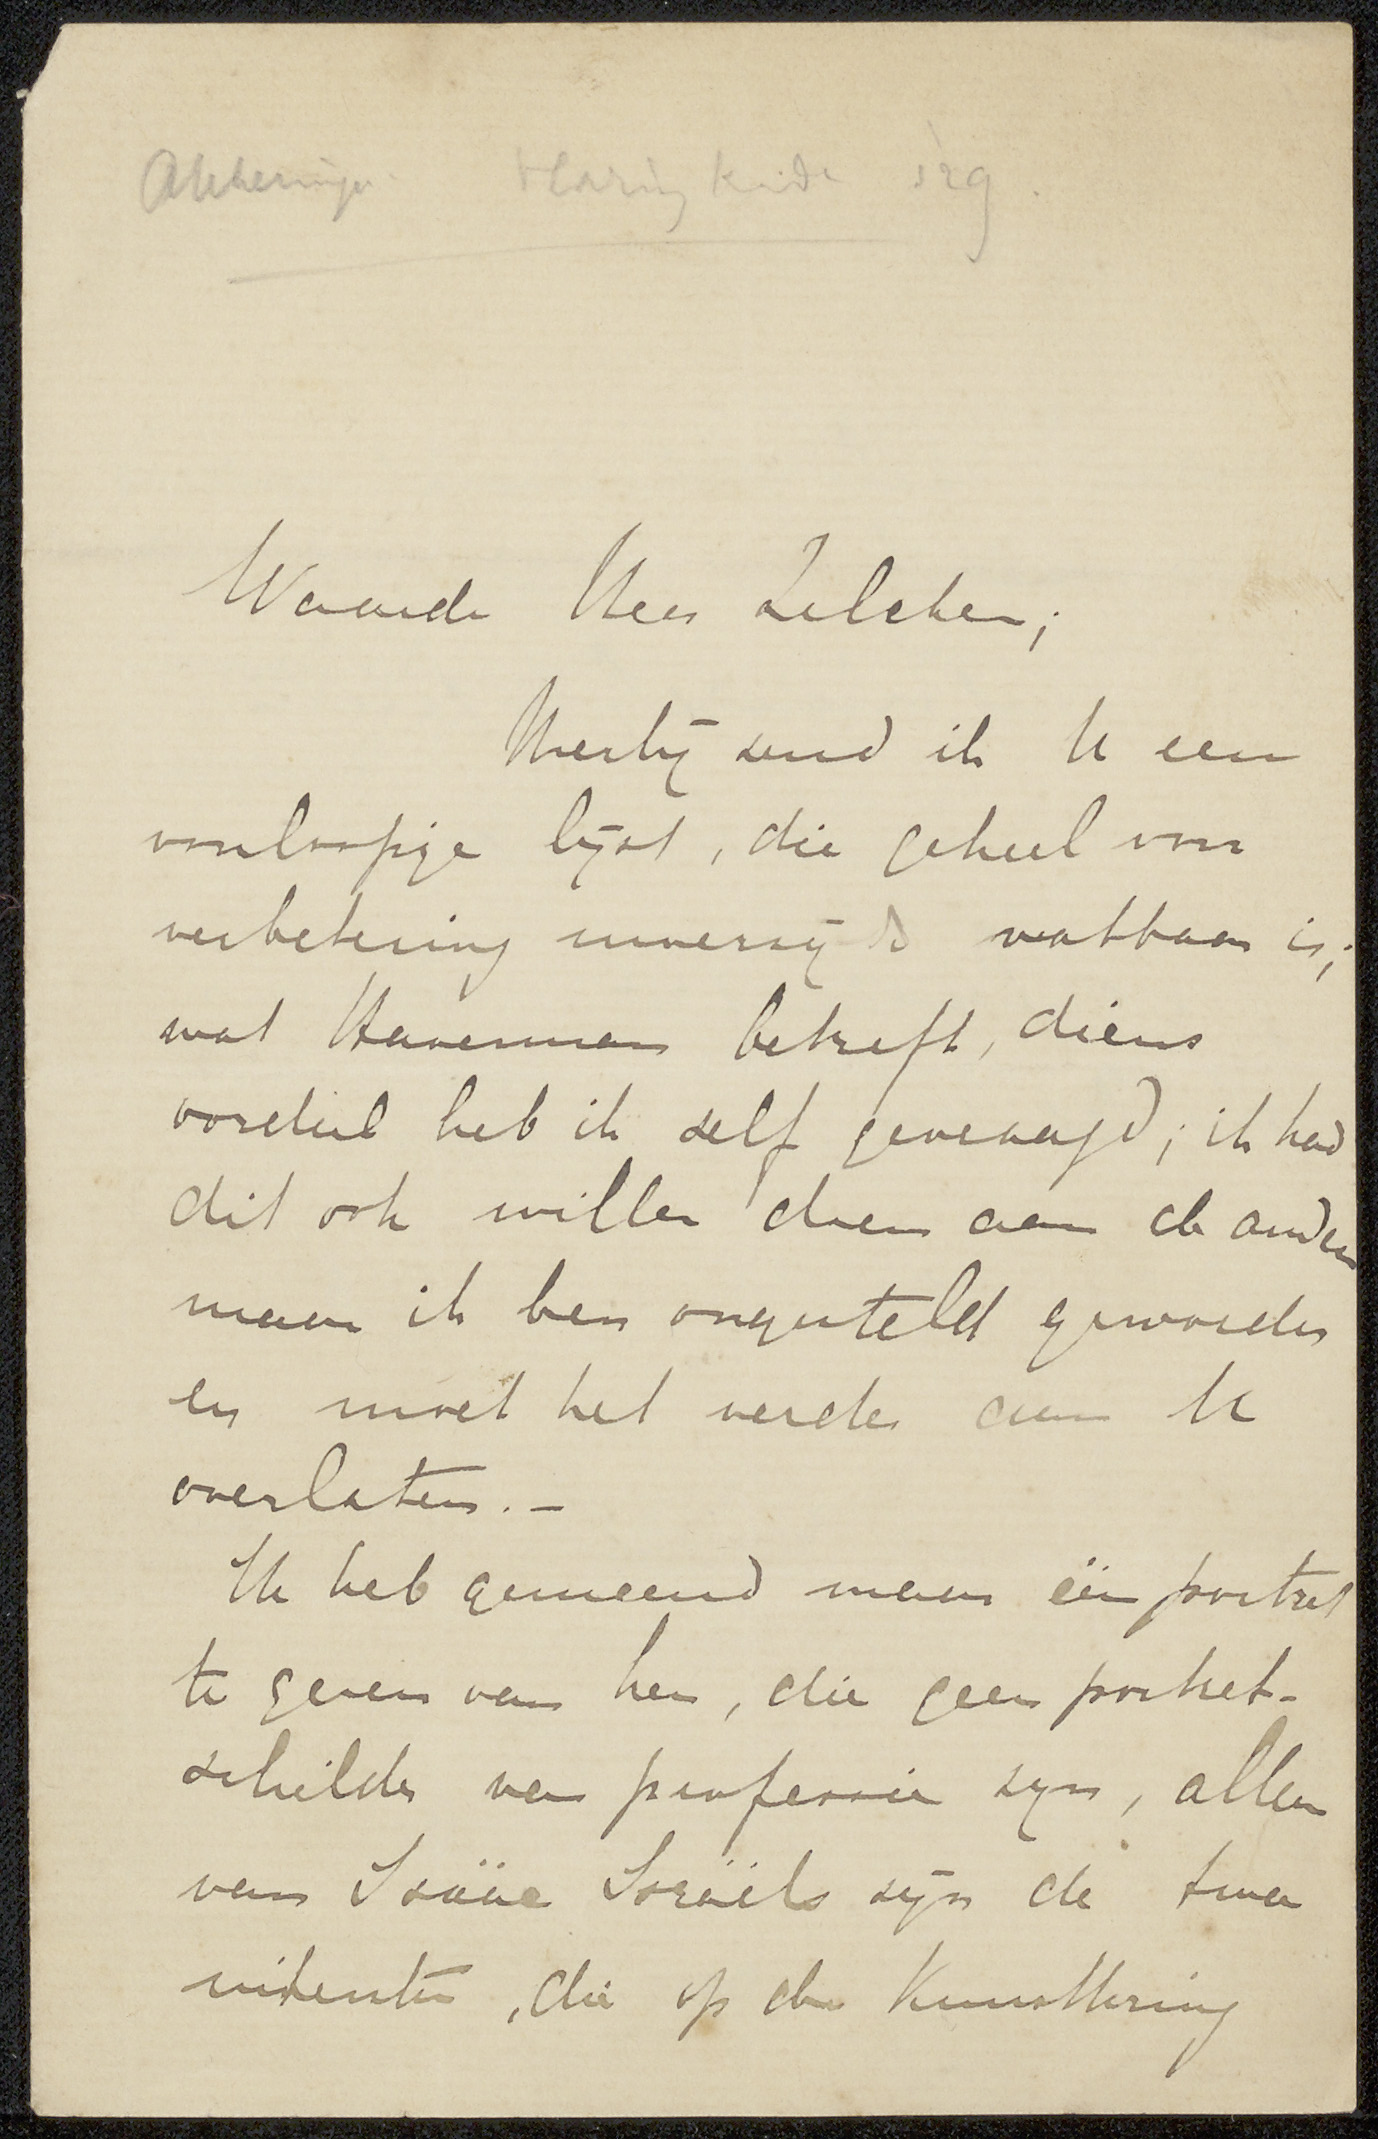 Akkeringa Haringkade 129.
Waarde Heer Zilcken;
Hierbij zend ik U een
voorloopige lijst, die geheel voor
verbetering uwerzijds vatbaar is;
wat Haverman betreft, diens
oordeel heb ik zelf gevraagd; ik had
dit ook willen doen aan de andere
maar ik ben ongesteld geworden
en moet het verder aan U
overlaten. –
Ik heb gemeend maar één portret
te geven van hen, die geen portret-
schilder van professie zijn, alleen
van Isaäc Israëls zijn de twee
, die op den Kunstkring